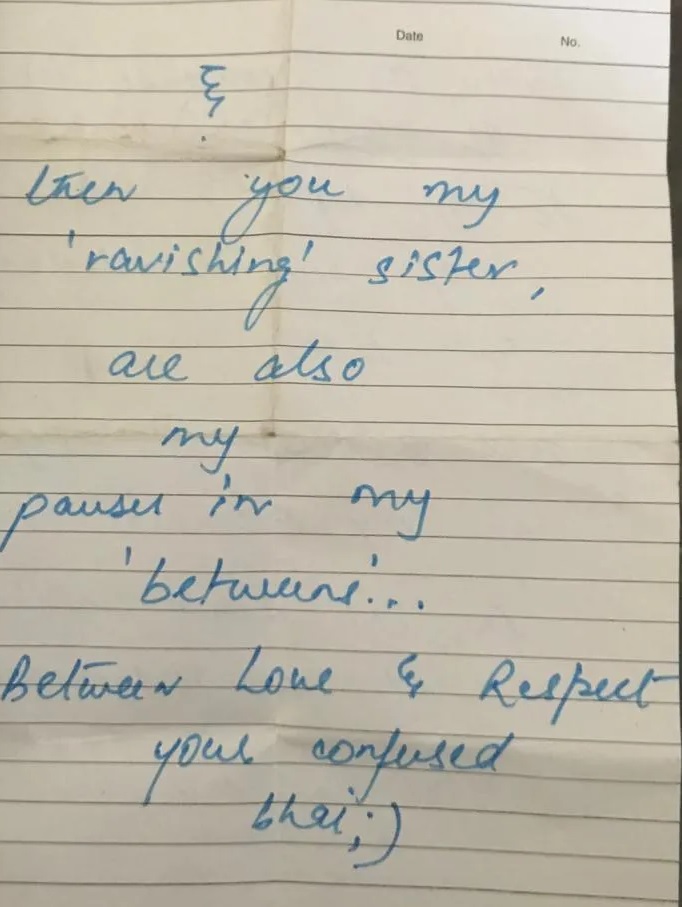 Date No.
&
then you my
'ravishing' sister,
are also
my
pauses in my
'betweens'...
Between Love & Respect
your confused
bhai;)